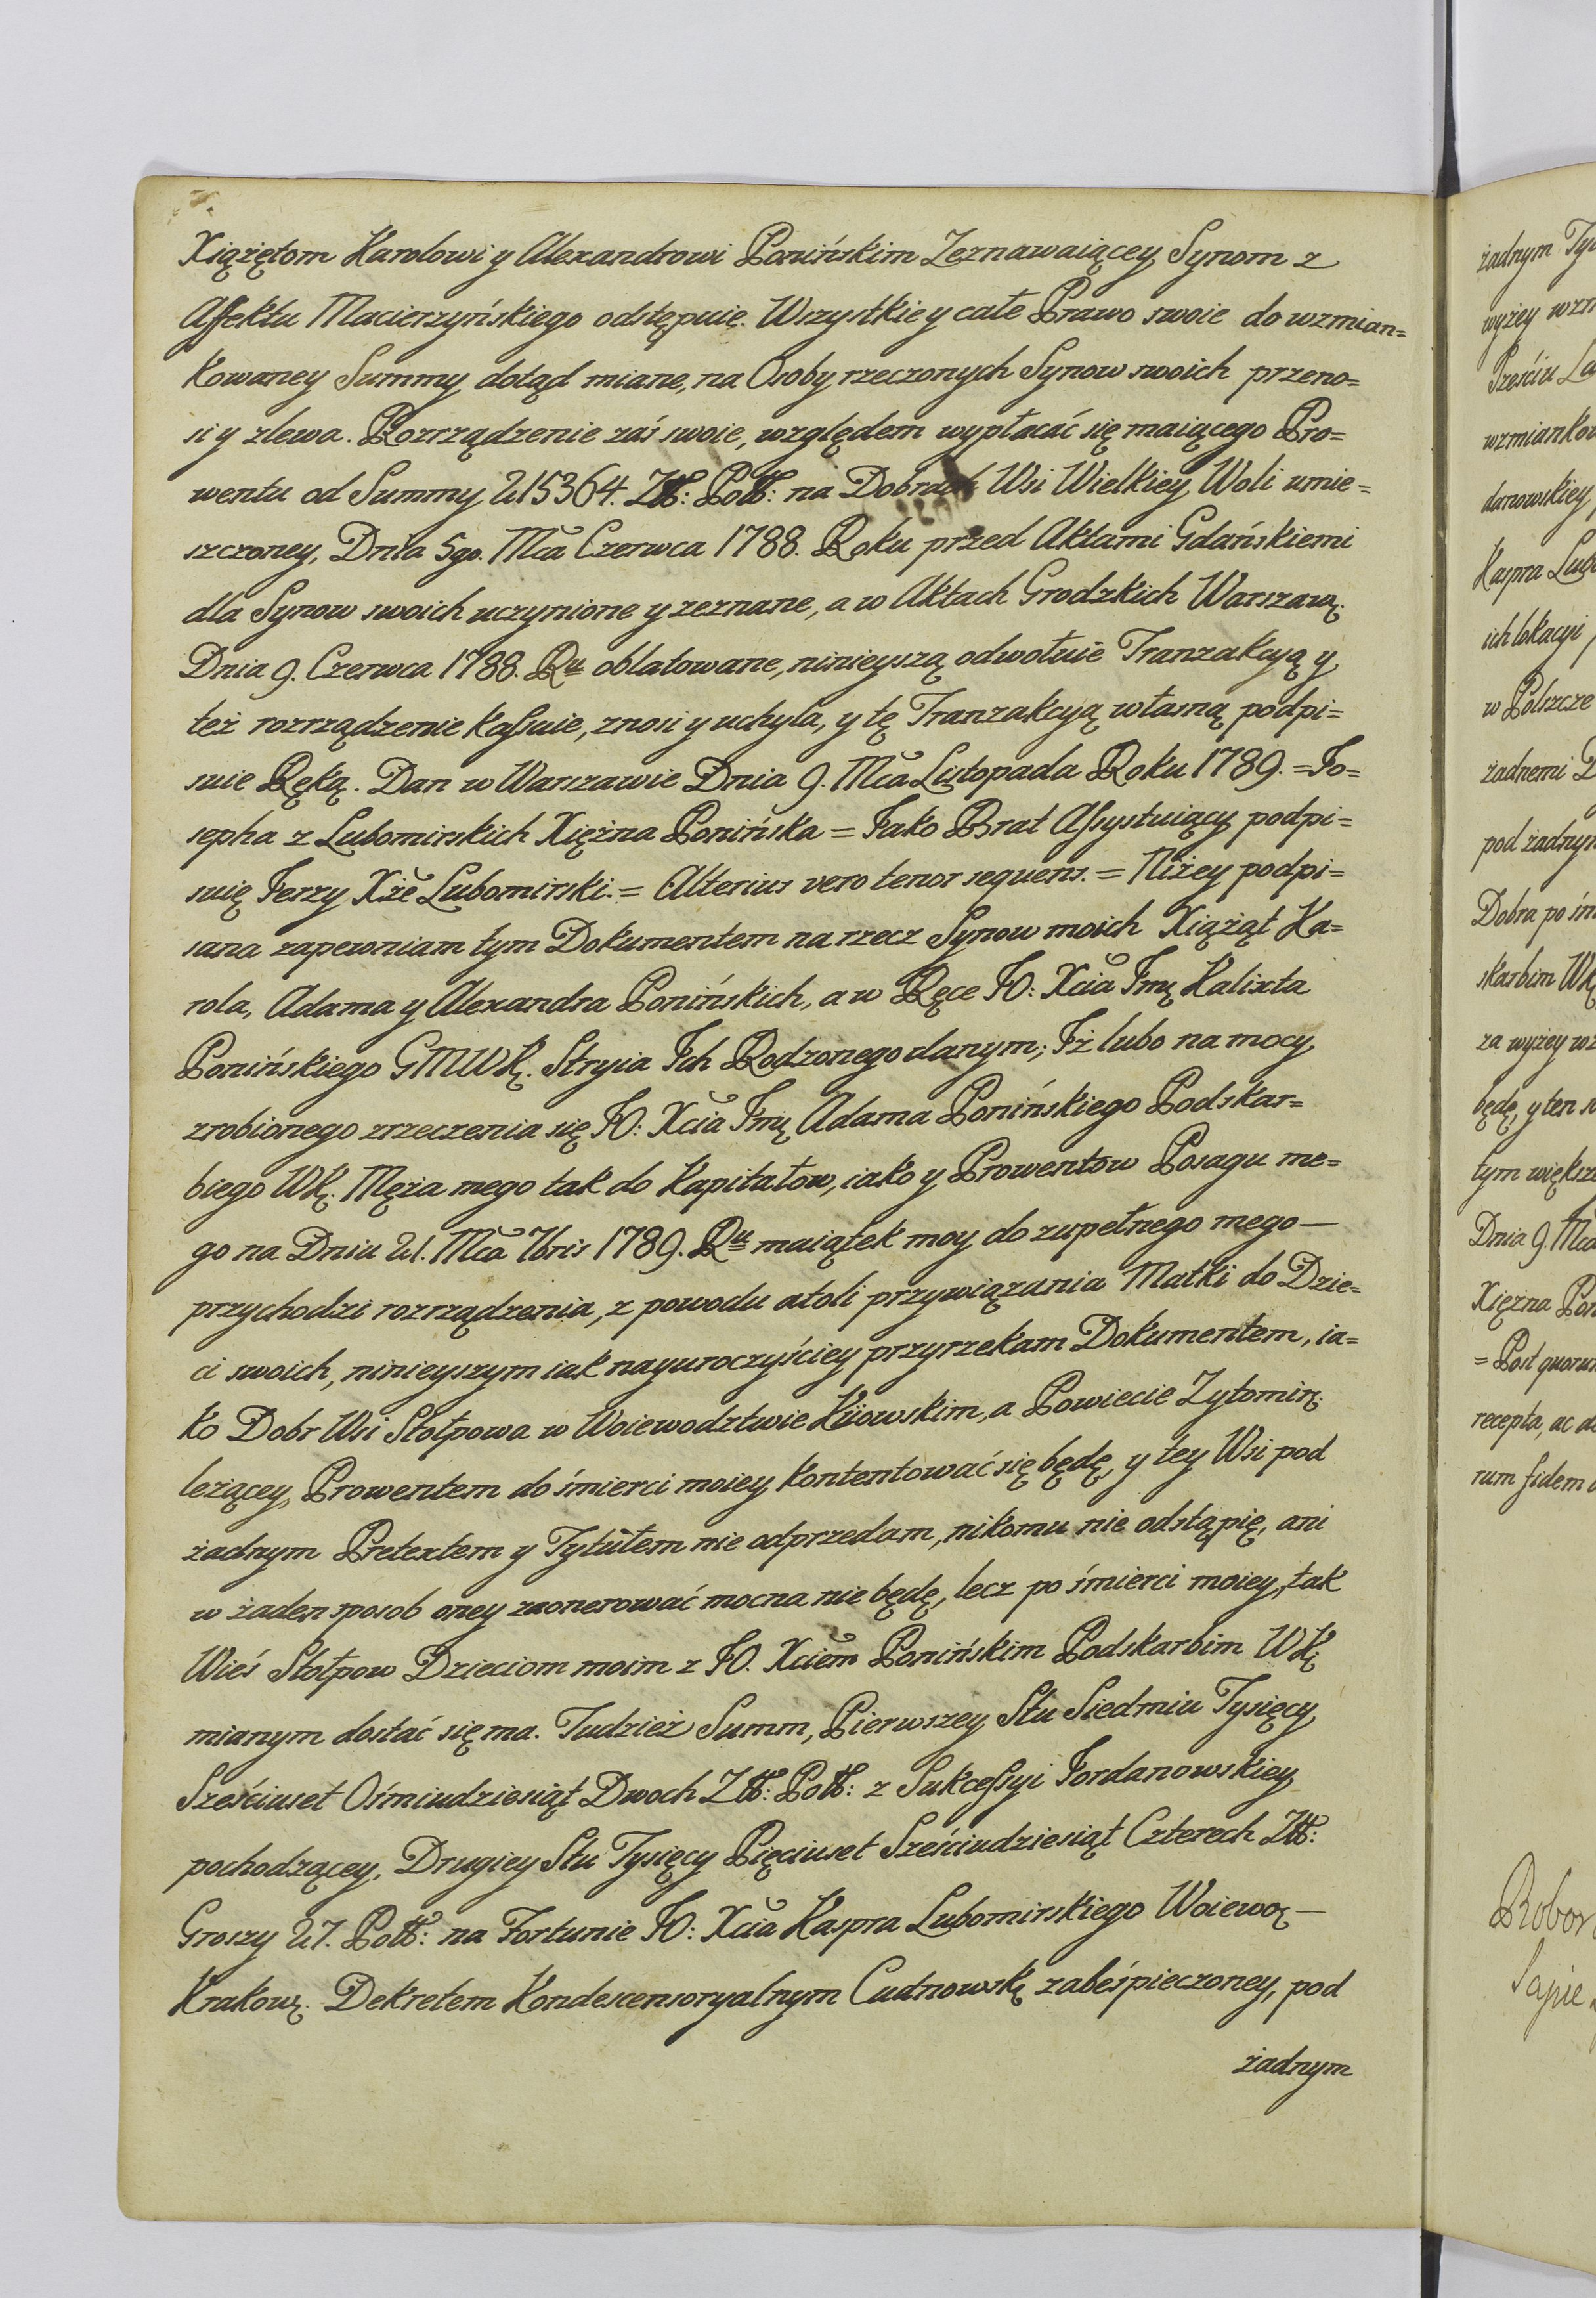 Xiążętom Karolowi y Alexandrowi Ponińskim Zeznawaiącey Synom z
Affektu Macierzyńskiego odstępuie. Wszystkie y całe Prawo swoie do wzmian=
kowaney Summy dotąd miane, na Osoby rzeczonych Synow swoich przeno=
si y zlewa. Rozrządzenie zaś swoie, względem wypłacać się maiącego Pro=
wentu od Summy 215364. Złł: Poll: na Dobrach Wsi Wielkiey Woli umie=
szczoney, Dnia 5go. Mca Czerwca 1788. Roku przed Aktami Gdańskiemi
dla Synow swoich uczynione y zeznane, a w Aktach Grodzkich Warszaw:
Dnia 9. Czerwca 1788. Ru oblatowane, ninieyszą odwołuie Tranzakcyą y
też rozrządzenie kassuie, znosi y uchyla, y tę Tranzakcyą własną podpi=
suie Ręką. Dan w Warszawie Dnia 9. Mca Listopada Roku 1789. = Jo=
sepha z Lubomirskich Xiężna Ponińska = Jako Brat Assystuiący podpi=
suię Jerzy Xże Lubomirski. = Alterius vero tenor sequens. = Niżey podpi=
sana zapewniam tym Dokumentem na rzecz Synow moich Xiążąt Ka=
rola, Adama y Alexandra Ponińskich, a w Ręce JO: Xcia Jmę Kalixta
Ponińskiego GMWK. Stryia Ich Rodzonego danym; Iż lubo na mocy
zrobionego zrzeczenia się JO: Xcia Jmę Adama Ponińskiego Podskar=
biego WK. Męża mego tak do Kapitałow, iako y Prowentow Posagu me=
go na Dniu 21. Mca 7bris 1789. Ru maiątek moy do zupełnego mego —
przychodzi rozrządzenia, z powodu atoli przywiązania Matki do Dzie=
ci swoich, ninieyszym iak nayuroczyściey przyrzekam Dokumentem, ia=
ko Dobr Wsi Stołpowa w Woiewodztwie Kiiowskim, a Powiecie Zytomir:
leżącey, Prowentem do śmierci moiey kontentować się będę, y tey Wsi pod
żadnym Pretextem y Tytułem nie odprzedam, nikomu nie odstąpię, ani
w żaden sposob oney zaonerować mocna nie będę, lecz po śmierci moiey, tak
Wieś Stołpow Dzieciom moim z JO. Xciem Ponińskim Podskarbim WK
mianym dostać się ma. Tudzież Summ, Pierwszey Stu Siedmiu Tysięcy
Sześciuset Ośmiudziesiąt Dwoch Złł: Poll: z Sukcessyi Jordanowskiey
pochodzącey, Drugiey Stu Tysięcy Pięciuset Sześciudziesiąt Czterech Złł:
Groszy 27. Poll: na Fortunie JO: Xcia Kaspra Lubomirskiego Woiewo: —
Krakow: Dekretem Kondescensoryalnym Cudnowskę zabeśpieczoney, pod
żadnym